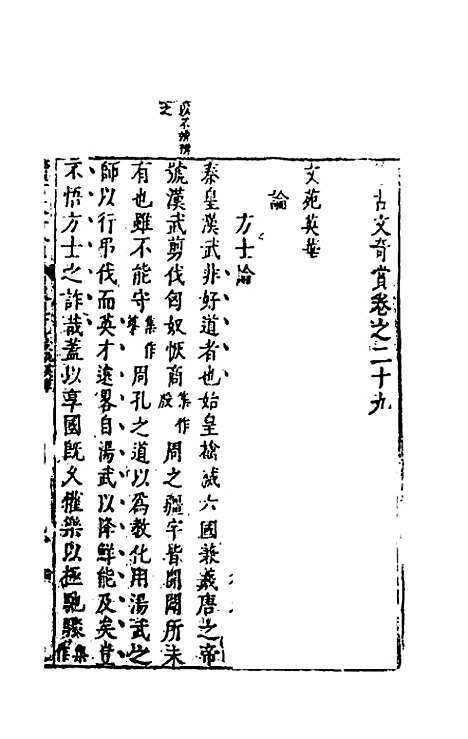 古文奇賞卷之二十九
文苑英華
論
方士論
秦皇漢武非好道者也始皇擒滅六國兼羲唐之帝
號漢武剪伐匈奴恢商集作殷周之疆宇皆開闢所未
有也雖不能守集作遵周孔之道以為教化用湯武之
師以行弔伐而英才遠畧自湯武以降鮮能及矣豈
不悟方士之詐哉蓋以享國既久懽樂以極馳騁集作
以不辨辨之